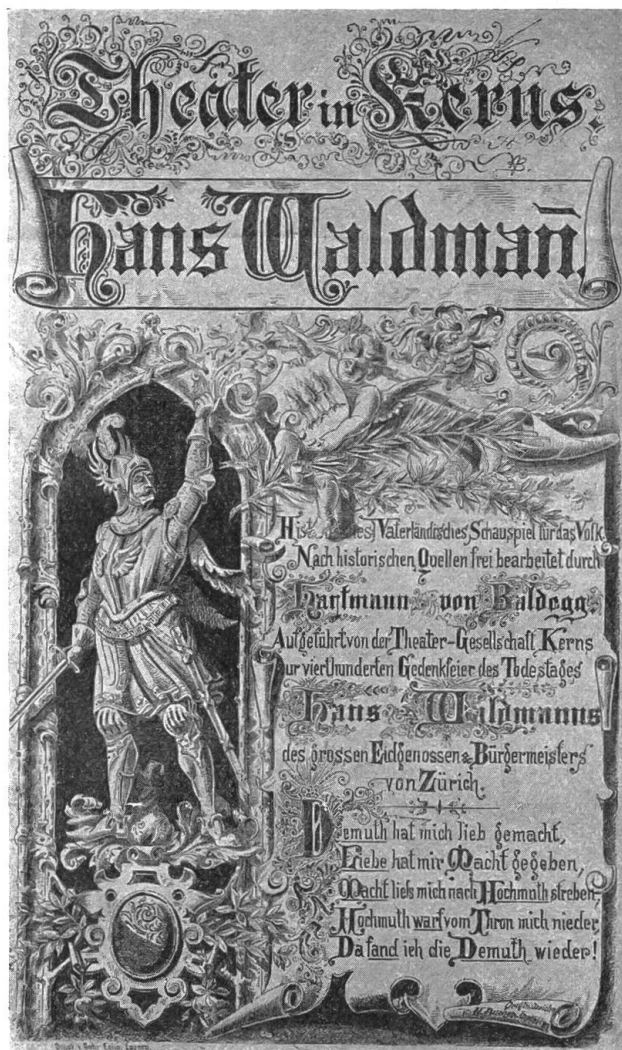 Theater in Kerns.
Hans Waldman̄.
Vaterländisches Schauspiel für das Volk
Nach historischen Quellen frei bearbeitet durch
Hartmann von Baldegg.
Aufgeführt von der Theater-Gesellschaft Kerns
zur vierthunderten Gedenkfeier des Todestages
Hans Waldmanns
des grossen Eidgenossen & Bürgermeisters
von Zürich.
Demuth hat mich lieb gemacht,
Liebe hat mir Macht gegeben,
Macht liess mich nach Hochmuth streben,
Hochmuth warf vom Thron mich nieder,
Da fand ich die Demuth wieder!